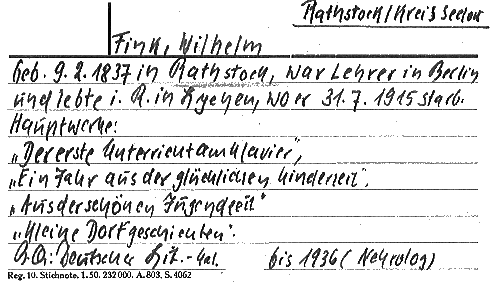 Rathstock/Kreis Seelow
Fink, Wilhelm
Geb. 9. 2. 1837 in Rathstock, war Lehrer in Berlin
und lebte i. R. in Lychen, wo er 31. 7. 1915 starb.
Hauptwerke:
„Der erste Unterricht am Klavier“,
„Ein Jahr aus der glücklichen Kinderzeit“,
„Aus der schönen Jugendzeit“
„Kleine Dorfgeschichten“.
Deutscher Lit.-Kal. bis 1936 (Nekrolog)
Reg. 10. Stichnote. 1. 50. 232 000. A. 803, S. 4062